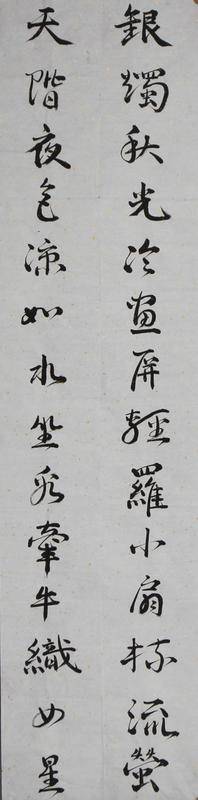 銀燭秋光冷畫屏輕羅小扇撲流螢
天階夜色涼如水坐看牽牛織女星